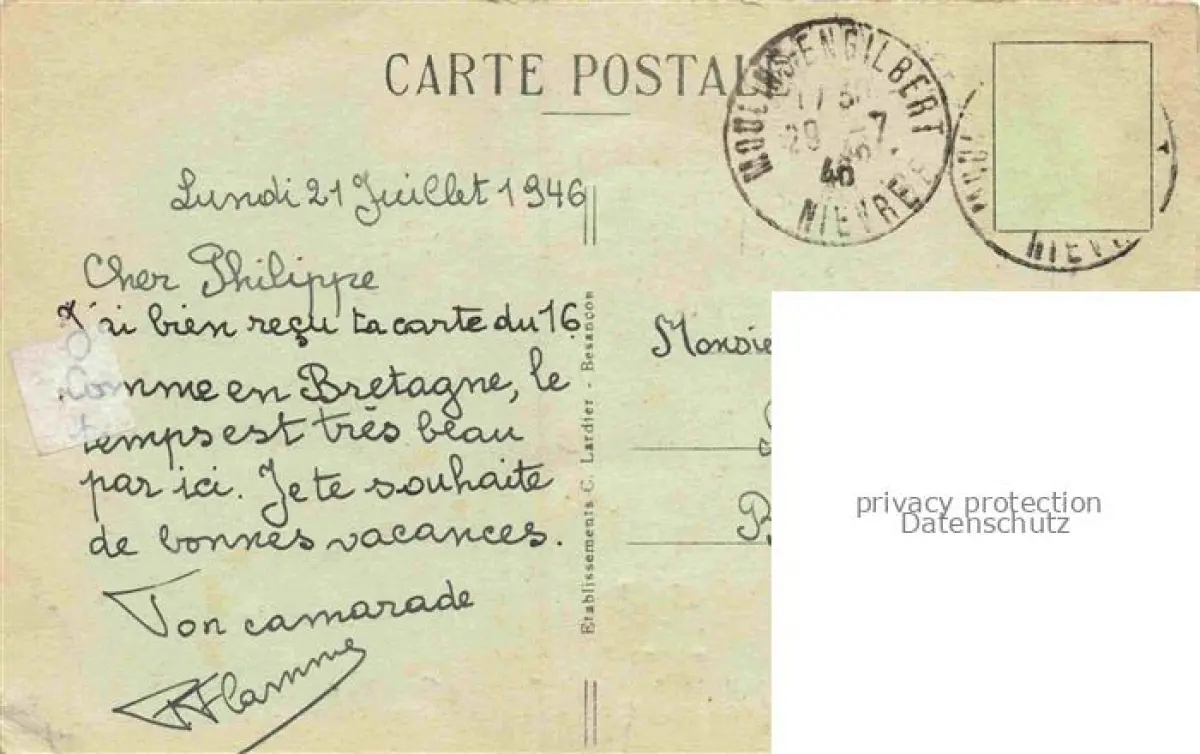 CARTE POSTALE
MOULINS-ENGILBERT
29 -7
46
NIEVRE
Lundi 21 Juillet 1946
Cher Philippe
J'ai bien reçu ta carte du 16
Comme en Bretagne, le
temps est très beau
par ici. Je te souhaite
de bonnes vacances.
Ton camarade
Flamme
Etablissements C. Lardier - Besançon
Monsie
privacy protection
Datenschutz